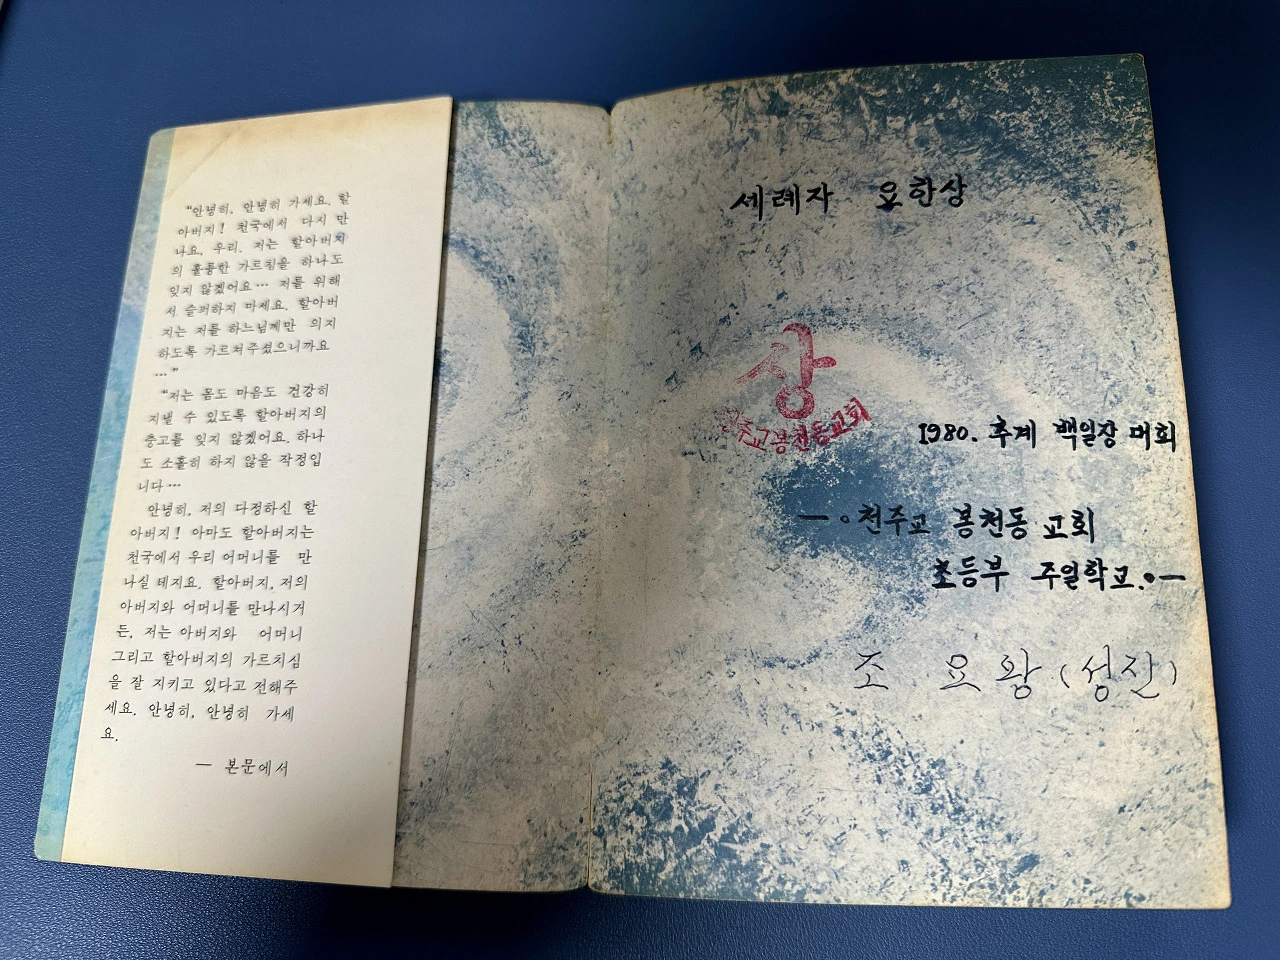 “안녕히, 안녕히 가세요. 할
아버지! 천국에서 다시 만
나요, 우리. 저는 할아버지
의 훌륭한 가르침을 하나도
잊지 않겠어요… 저를 위해
서 슬퍼하지 마세요. 할아버
지는 저를 하느님께만 의지
하도록 가르쳐주셨으니까요
…”
“저는 몸도 마음도 건강히
지낼 수 있도록 할아버지의
충고를 잊지 않겠어요. 하나
도 소홀히 하지 않을 작정입
니다…
안녕히, 저의 다정하신 할
아버지! 아마도 할아버지는
천국에서 우리 어머니를 만
나실 테지요. 할아버지, 저의
아버지와 어머니를 만나시거
든, 저는 아버지와 어머니
그리고 할아버지의 가르치심
을 잘 지키고 있다고 전해주
세요. 안녕히, 안녕히 가세
요.
— 본문에서
세례자 요한상
상
천주교봉천동교회
1980. 추계 백일장 대회
—∘천주교 봉천동 교회
초등부 주일학교.•—
조 요왕 (성진)